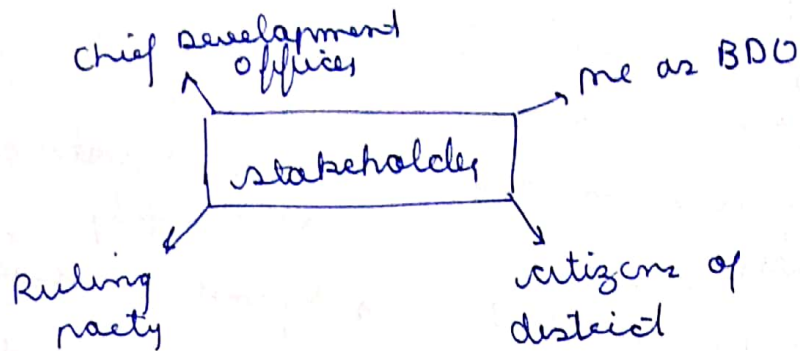 Chief Development
Officer
me as BDO
stakeholder
Ruling
party
citizens of
district